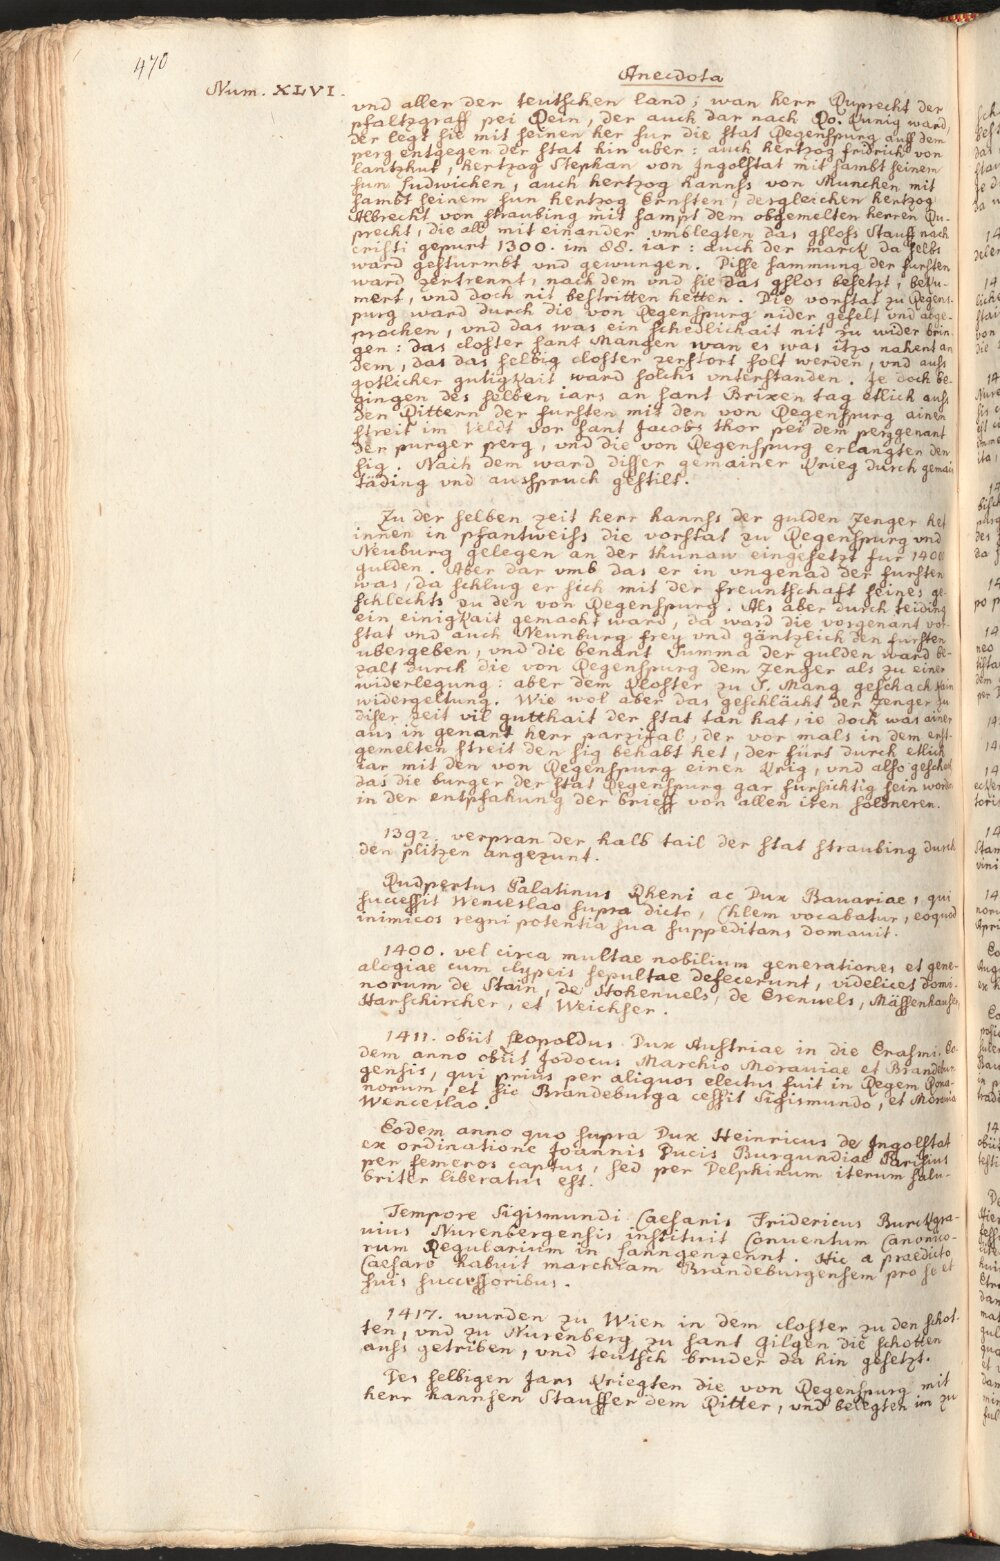 470
Num. XLVI.
Anecdota
vnd aller der teutschen land; wan herr Ruprecht der
pfaltzgraff pei Rein, der auch dar nach Ro. Kunig ward,
der legt sie mit seinen her fur die stat Regenspurg auff dem
perg entgegen der stat hin uber: auch hertzog fridrich von
lantzhut, hertzog Stephan von Ingolstat mit sambt seinem
sun Ludwichen, auch hertzog hannss von Munchen mit
sambt seinem sun hertzog Ernsten, dergleichen hertzog
Albrecht von straubing mit sampt dem obgemelten herren Ru-
precht, die all mit einander vmblegten das gsloss Stauff nach
cristi gepurt 1300. im 88. iar: auch der marck da selbs
ward gesturmbt vnd gewungen. Disse sammung der fursten
ward zertrennt, nach dem vnd sie das gslos besetzt, beku-
mert, vnd doch nit bestritten hetten. Die vorstat zu Regens-
purg ward durch die von Regenspurg nider gefelt vnd abge-
prochen, vnd das was ein schedlichait nit zu wider brin-
gen: das closter sant Mangen wan es was itzo nahent an
dem, das das selbig closter zerstort solt werden, vnd auss
gotlicher gutigkait ward solchs vnterstanden. Je doch be-
gingen des selben iars an sant Brixen tag etlich auss
den Rittern der fursten mit den von Regenspurg ainen
streit im Veldt vor sant Jacobs thor pei dem perg genant
der purger perg, vnd die von Regenspurg erlangten den
sig. Nach dem ward disser gemainer krieg durch gemain
täding vnd ausspruch gestilt.
Zu der selben zeit herr hannss der gulden Zenger het
innen in pfantweiss die vorstat zu Regenspurg vnd
Neuburg gelegen an der thunaw eingesetzt fur 1400
gulden. Aber dar vmb das er in vngenad der fursten
was, da schlug er sich mit der freuntschaft seines ge-
schlechts zu den von Regenspurg. Als aber durch teiding
ein einigkait gemacht ward, da ward die vorgenant vor-
stat vnd auch Neunburg frey vnd gäntzlich den fursten
ubergeben, vnd die benant Summa der gulden ward be-
zalt durch die von Regenspurg dem Zenger als zu einer
widerlegung: aber dem kloster zu S. Mang geschach kain
widergeltung. Wie wol aber das geschlächt der Zenger zu
diser zeit vil gutthait der stat tan hat, ie doch was ainer
aus in genant herr parzifal, der vor mals in dem erst-
gemelten streit den sig behabt het, der fürt durch etlich
iar mit den von Regenspurg einen krig, vnd also geschah
das die burger der stat Regenspurg gar fursichtig sein worden
in der entpfahung der brieff von allen iren soldneren.
1392. verpran der halb tail der stat straubing durch
den plitzen angezunt.
Rudpertus Palatinus Rheni ac Dux Bauariae, qui
successit Wenceslao supra dicto, Chlem vocabatur, eoquod
inimicos regni potentia sua suppeditans domauit.
1400. vel circa multae nobilium generationes et gene-
alogiae cum clypeis sepultae defecerunt, videlicet domi-
norum de Stain, de Hohenuels, de Erenuels, Mässenhauser,
Harschircher, et Weichser.
1411. obiit Leopoldus Dux Austriae in die Erasmi. Eo-
dem anno obiit Jodocus Marchio Morauiae et Brandebur-
gensis, qui prius per aliquos electus fuit in Regem Roma-
norum, et sic Brandeburga cessit Sigismundo, et Morauia
Wenceslao.
Eodem anno quo supra Dux Heinricus de Ingolstat
ex ordinatione Joannis Ducis Burgundiae Parisius
per femeros captus, sed per Delphinum iterum salu-
briter liberatus est.
Tempore Sigismundi Caesaris Fridericus Burckgra-
uius Nurenbergensis instituit Conuentum Canonico-
rum Regularium in Lanngenzennt. Hic a praedicto
Caesare habuit marchiam Brandeburgensem pro se et
suis successoribus.
1417. wurden zu Wien in dem closter zu den schot-
ten, vnd zu Nurenberg zu sant Gilgen die schotten
auss getriben, vnd teutsch bruder da hin gesetzt.
Des selbigen Jars kriegten die von Regenspurg mit
herr hannsen Stauffer dem Ritter, vnd belegten im zu